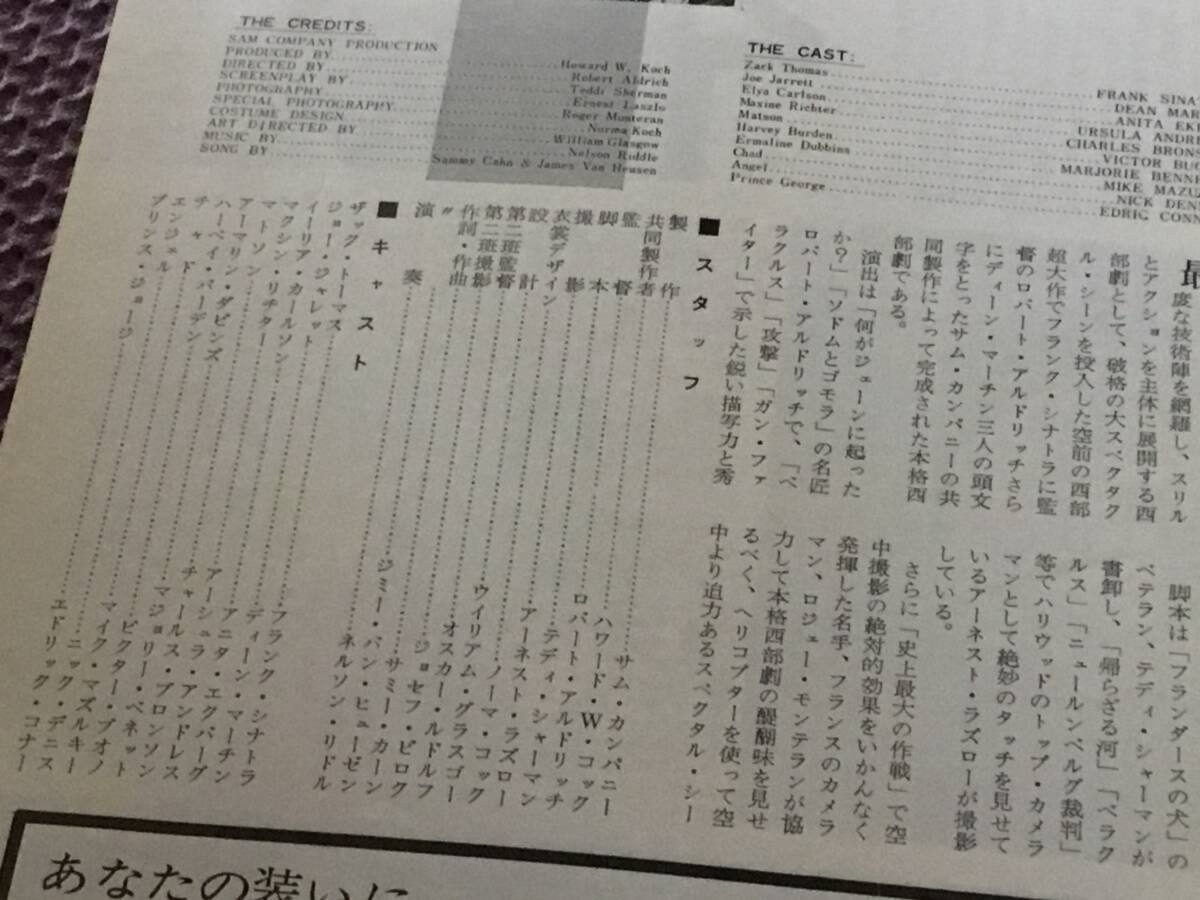 THE CREDITS:
SAM COMPANY PRODUCTION
PRODUCED BY Howard W. Koch
DIRECTED BY Robert Aldrich
SCREENPLAY BY Teddi Sherman
PHOTOGRAPHY Ernest Laszlo
SPECIAL PHOTOGRAPHY Roger Monteran
COSTUME DESIGN Norma Koch
ART DIRECTED BY William Glasgow
MUSIC BY Nelson Riddle
SONG BY Sammy Cahn & James Van Heusen
THE CAST:
Zack Thomas FRANK SINA
Joe Jarrett DEAN MAR
Elya Carlson ANITA EK
Maxine Richter URSULA ANDRE
Matson CHARLES BRONS
Harvey Burden VICTOR BUO
Ermaline Dubbins MARJORIE BENNE
Chad MIKE MAZU
Angel NICK DENN
Prince George EDRIC CONN
最
度な技術陣を網羅し、スリル
とアクションを主体に展開する西
部劇として、破格の大スペクタク
ル・シーンを投入した空前の西部
超大作でフランク・シナトラに監
督のロバート・アルドリッチさら
にディーン・マーチン三人の頭文
字をとったサム・カンパニーの共
同製作によって完成された本格西
部劇である。
演出は「何がジェーンに起った
か?」「ソドムとゴモラ」の名匠
ロバート・アルドリッチで、「ベ
ラクルス」「攻撃」「ガン・ファ
イター」で示した鋭い描写力と秀
脚本は「フランダースの犬」の
ベテラン、テディ・シャーマンが
書卸し、「帰らざる河」「ベラク
ルス」「ニュールンベルグ裁判」
等でハリウッドのトップ・カメラ
マンとして絶妙のタッチを見せて
いるアーネスト・ラズローが撮影
している。
さらに「史上最大の作戦」で空
中撮影の絶対的効果をいかんなく
発揮した名手、フランスのカメラ
マン、ロジェー・モンテランが協
力して本格西部劇の醍醐味を見せ
るべく、ヘリコプターを使って空
中より迫力あるスペクタル・シー
■スタッフ
製作 サム・カンパニー
共同製作者 ハワード・W・コック
監督 ロバート・アルドリッチ
脚本 テディ・シャーマン
撮影 アーネスト・ラズロー
衣裳デザイン ノーマ・コック
設計 ウイリアム・グラスゴー
第二班監督 オスカー・ルドルフ
第二班撮影 ジョセフ・ビロク
作詞・作曲 サミー・カーン
〃 ジミー・バン・ヒューゼン
演奏 ネルソン・リドル
■キャスト
ザック・トーマス フランク・シナトラ
ジョー・ジャレット ディーン・マーチン
イーリア・カールソン アニタ・エクバーグ
マクシン・リチター アーシュラ・アンドレス
マトソン チャールス・ブロンソン
アーマリン・ダビンズ マジョリー・ベネット
ハーベイ・バーデン ビクター・ブオノ
チャド マイク・マズルキー
エンジェル ニック・デニス
プリンス・ジョージ エドリック・コナー
あなたの装いに